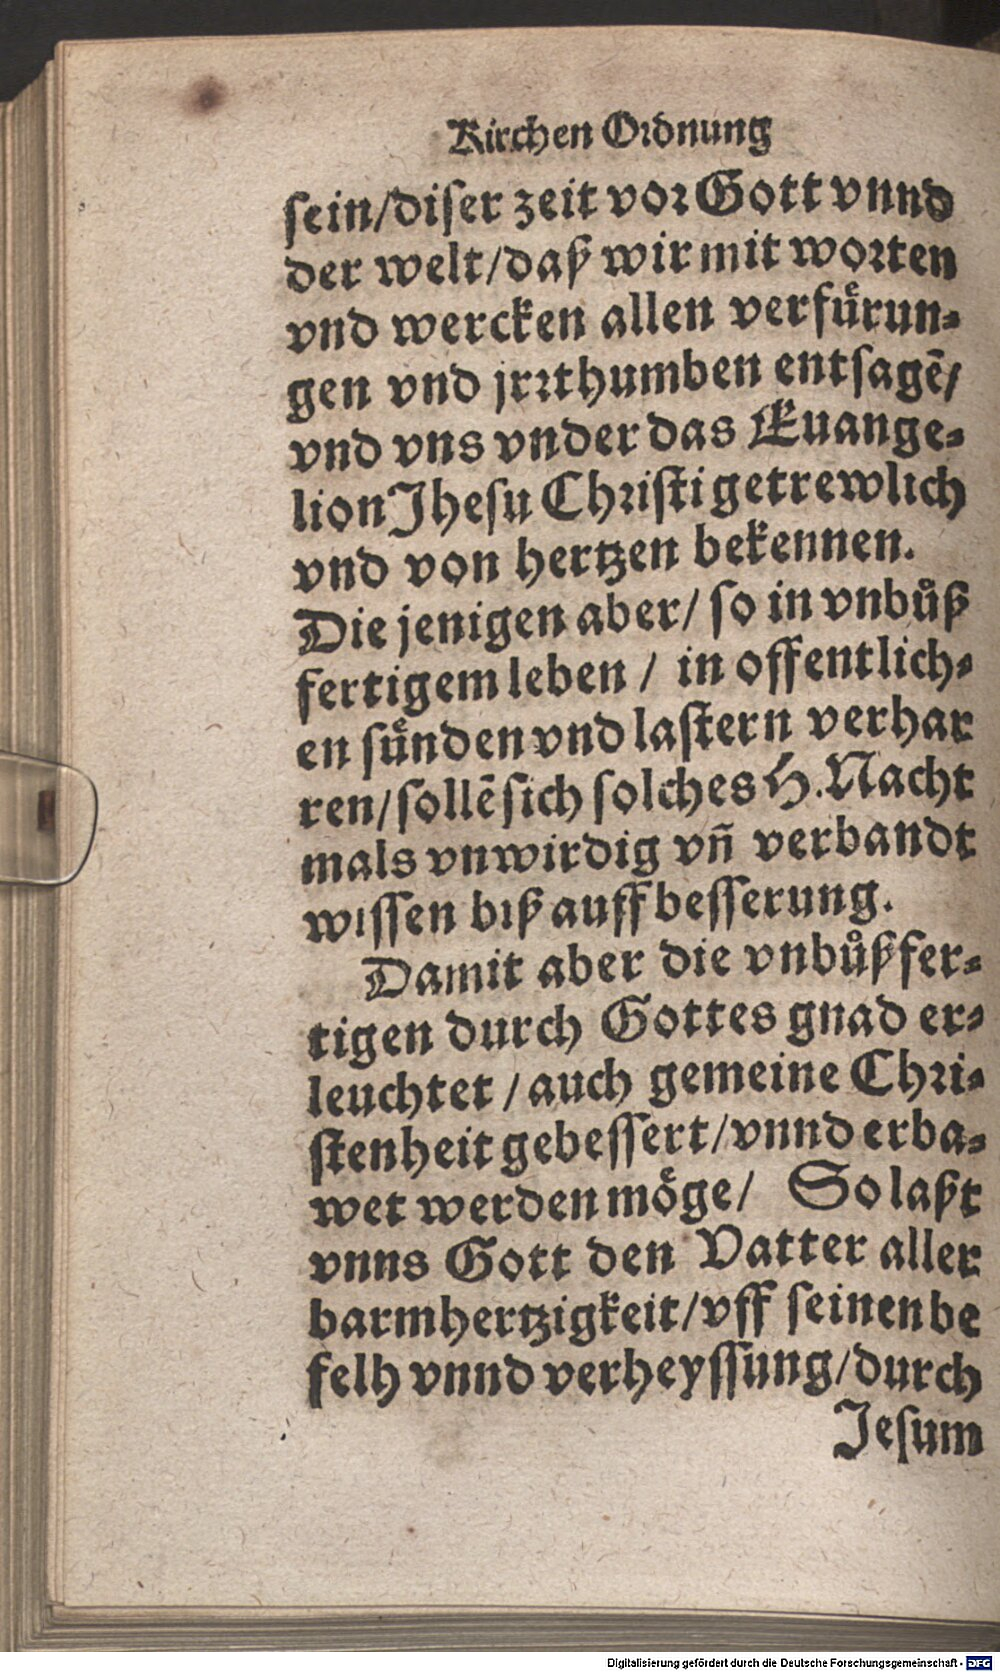 Kirchen Ordnung
sein/diser zeit vor Gott vnnd
der welt/daß wir mit worten
vnd wercken allen verfuͤrun⸗
gen vnd jrrthumben entsagē/
vnd vns vnder das Euange⸗
lion Jhesu Christi getrewlich
vnd von hertzen bekennen.
Die jenigen aber/ so in vnbuͦß
fertigem leben / in offentlich⸗
en suͤnden vnd lastern verhar
ren/sollē sich solches H. Nacht
mals vnwirdig vñ verbandt
wissen biß auff besserung.
Damit aber die vnbuͦßfer⸗
tigen durch Gottes gnad er⸗
leuchtet / auch gemeine Chri⸗
stenheit gebessert/vnnd erba⸗
wet werden moͤge/ So laßt
vnns Gott den Vatter aller
barmhertzigkeit/vff seinen be
felh vnnd verheyssung/durch
Jesum
Digitalisierung gefördert durch die Deutsche Forschungsgemeinschaft - DFG